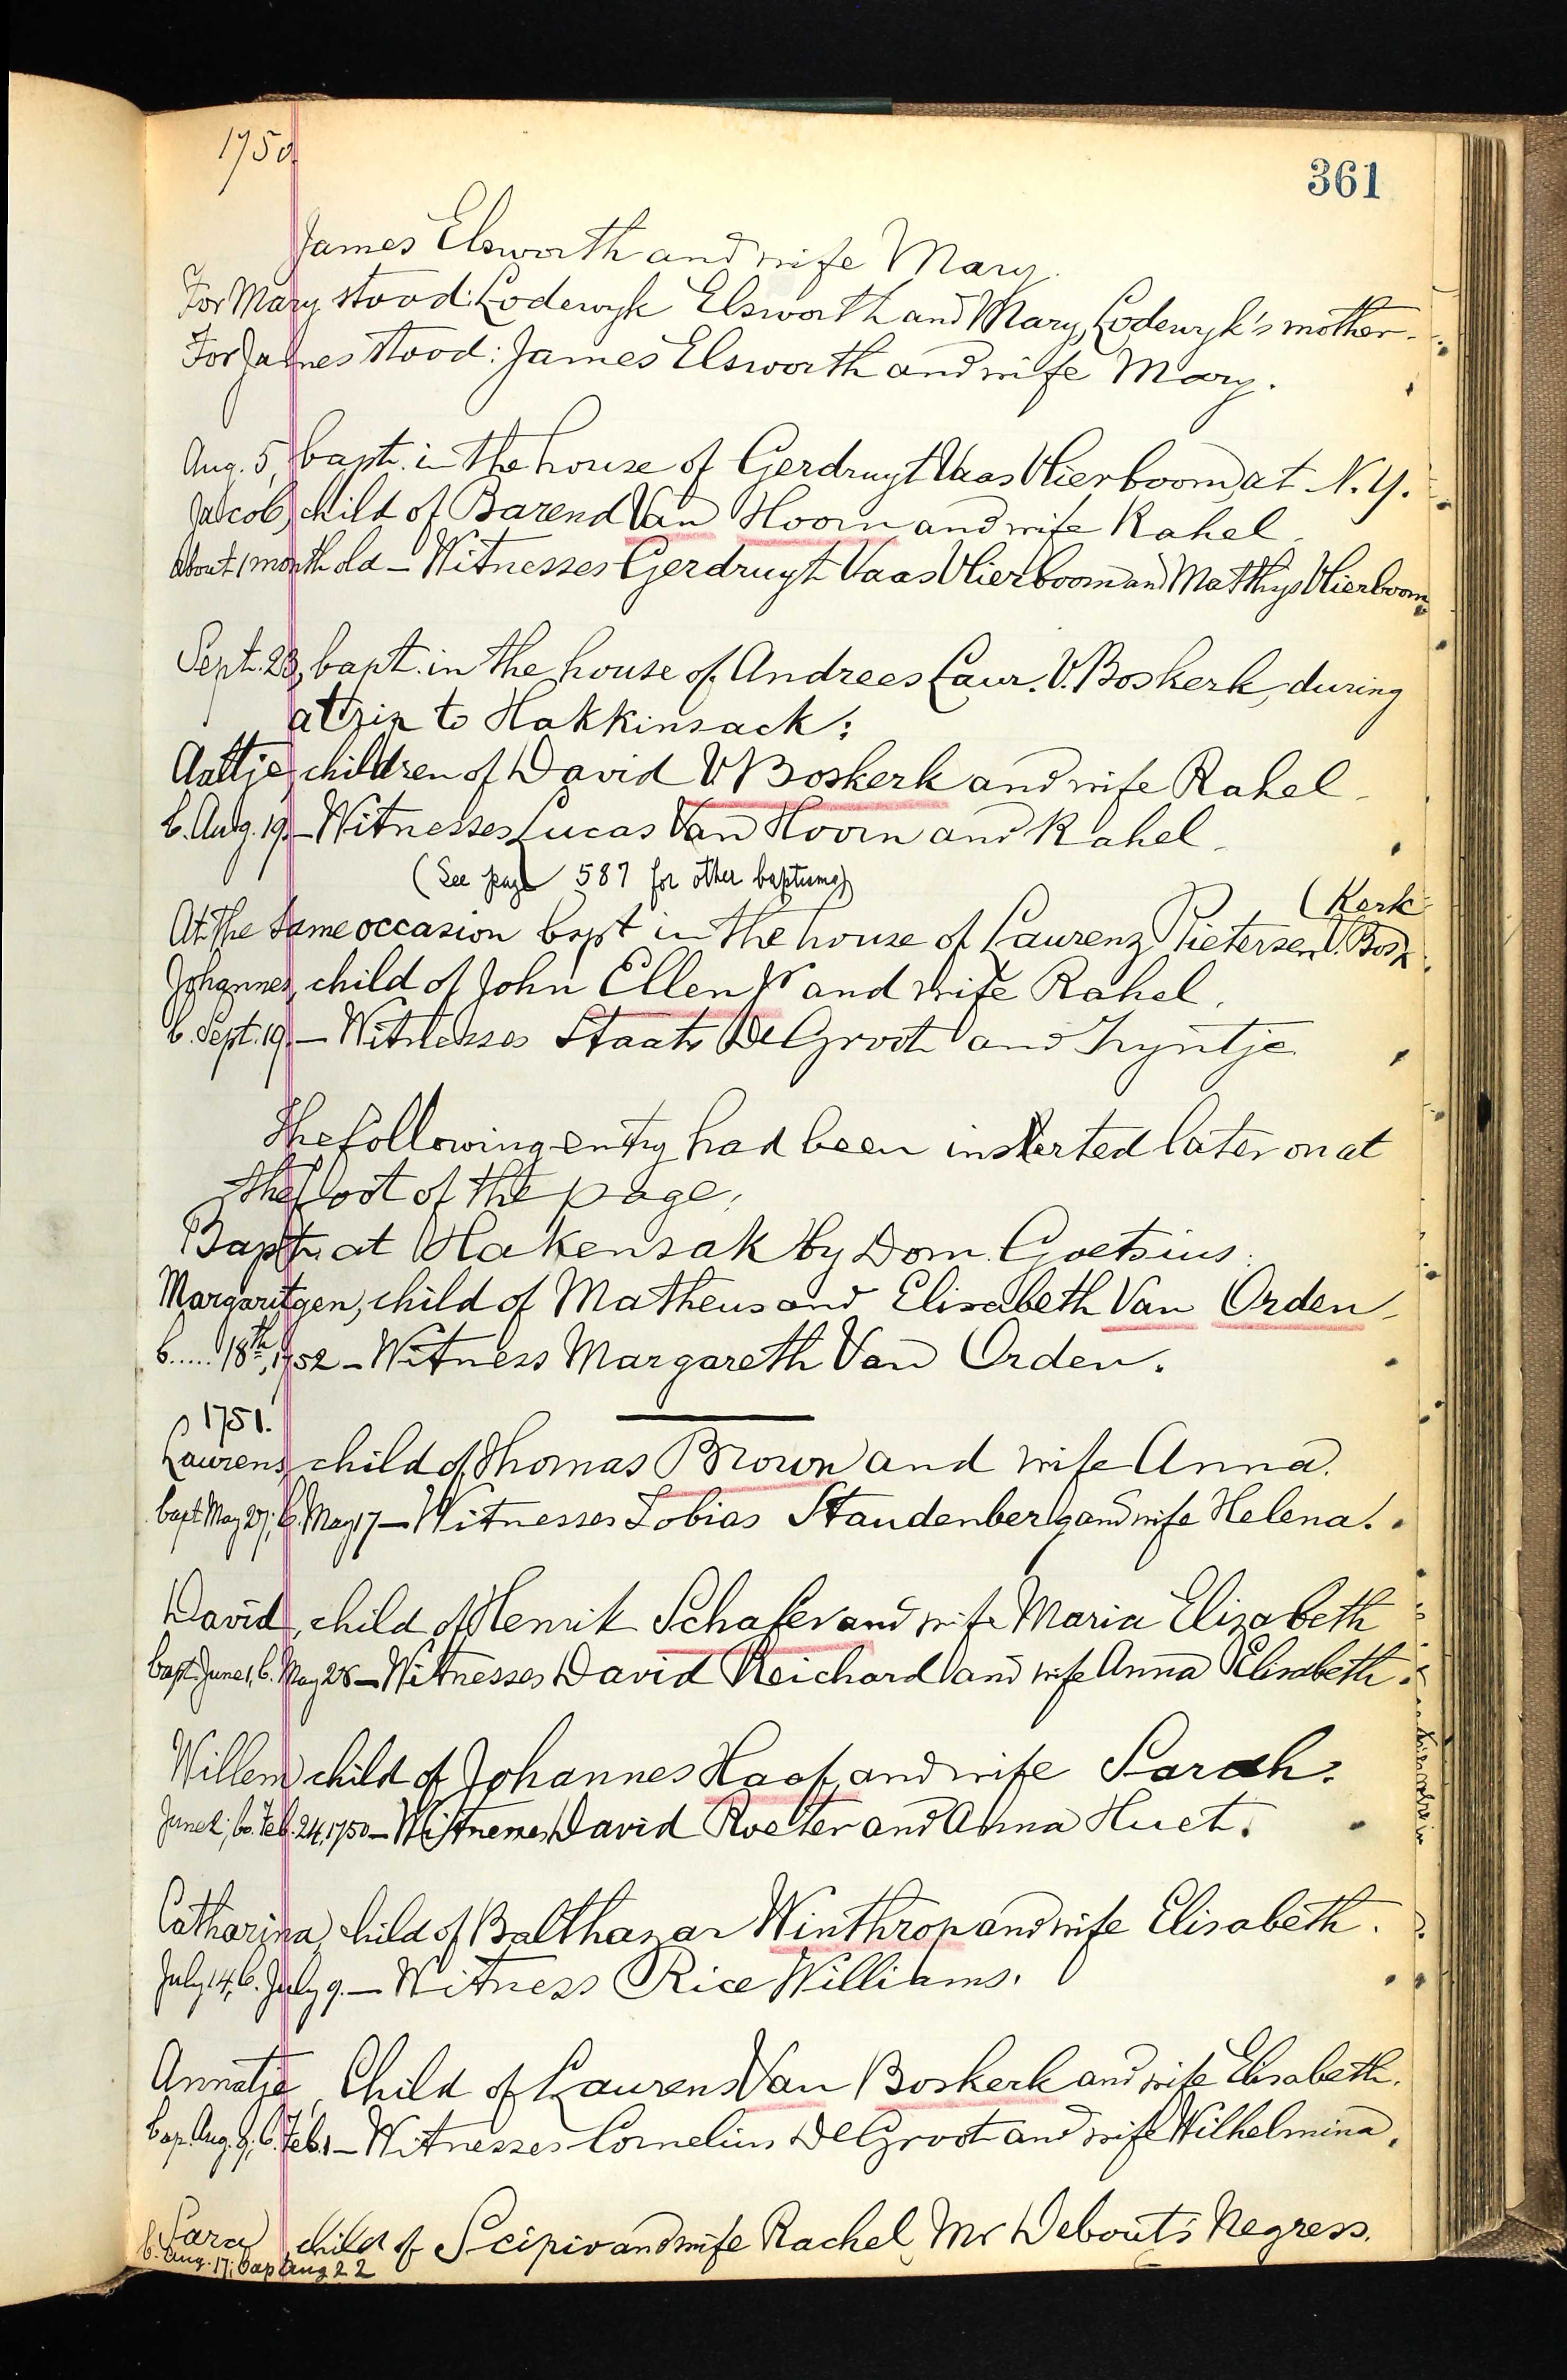 1750.
361
James Elsworth and wife Mary.
For Mary stood: Lodewyk Elsworth and Mary, Lodewyk's mother.
For James stood: James Elsworth and wife Mary.
Aug. 5, bapt. in the house of Gerdruyt Vaas Vlierboom, at N.Y.
Jacob, child of Barend Van Hoorn and wife Rahel.
About 1 month old – Witnesses Gerdruyt Vaas Vlierboom and Matthys Vlierboom
Sept. 23, bapt. in the house of Andrees Laur. V. Boskerk, during
a trip to Hakkinsack:
Aaltje, children of David V Boskerk and wife Rahel.
b. Aug. 19. – Witnesses Lucas Van Hoorn and Rahel.
(See page 587 for other baptisms)
(Kerk
At the same occasion bapt in the house of Laurenz Pietersen V. Bos
Johannes, child of John Ellen and wife Rahel.
b. Sept. 19. – Witnesses Staats De Groot and Tryntje
The following entry had been inserted later on at
the foot of the page:
Bapt. at Hakensak by Dom. Goetsius:
Margaritgen, child of Matheus and Elisabeth Van Orden
b..... 18th, 1752 – Witness Margareth Van Orden.
1751.
Laurens, child of Thomas Brown and wife Anna.
bapt. May 27; b. May 17 – Witnesses Tobias Staudenberg and wife Helena.
David, child of Henrik Schafer and wife Maria Elizabeth
bapt. June 1, b. May 28 – Witnesses David Reichard and wife Anna Elisabeth.
Willem child of Johannes Haaf, and wife Sarah.
June 2; b. Feb. 24, 1750 – Witnesses David Roeter and Anna Huet.
Catharina, child of Balthazar Winthrop and wife Elisabeth.
July 14, b. July 9. – Witness Rice Williams.
Annatje, Child of Laurens Van Boskerk and wife Elisabeth.
bap. Aug. 9; b. Feb. 1 – Witnesses Cornelius De Groot and wife Wilhelmina.
Sara, child of Scipio and wife Rachel, Mr Debouts Negress.
b. Aug. 17; bap Aug 22